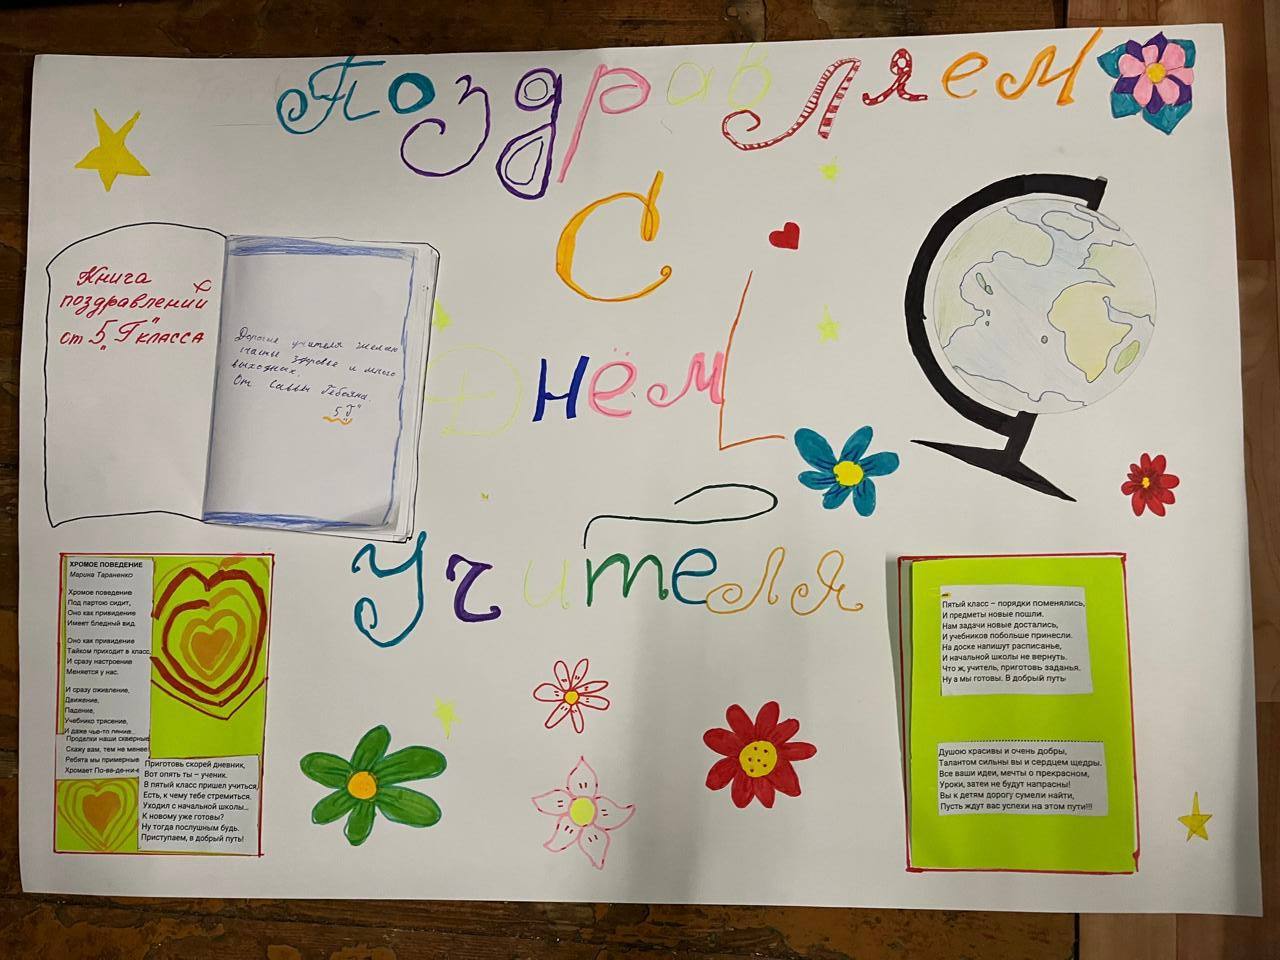 Поздравляем
С
Днём
Учителя
Книга
поздравлений
от 5 "Г" класса
Дорогие учителя желаю
счастья здоровье и много
выходных.
От Саввы
5 "Г"
ХРОМОЕ ПОВЕДЕНИЕ
Марина Тараненко
Хромое поведение
Под партою сидит,
Оно как привидение
Имеет бледный вид.
Оно как привидение
Тайком приходит в класс,
И сразу настроение
Меняется у нас.
И сразу оживление,
Движение,
Падение,
Учебнико трясение,
И даже чье-то пение...
Проделки наши скверные
Скажу вам, тем не менее!
Ребята мы примерные
Хромает По-ве-де-ни-е
Приготовь скорей дневник,
Вот опять ты – ученик.
В пятый класс пришел учиться,
Есть, к чему тебе стремиться.
Уходил с начальной школы...
К новому уже готовы?
Ну тогда послушным будь.
Приступаем, в добрый путь!
Пятый класс – порядки поменялись,
И предметы новые пошли.
Нам задачи новые достались,
И учебников побольше принесли.
На доске напишут расписанье,
И начальной школы не вернуть.
Что ж, учитель, приготовь заданья.
Ну а мы готовы. В добрый путь!
Душою красивы и очень добры,
Талантом сильны вы и сердцем щедры.
Все ваши идеи, мечты о прекрасном,
Уроки, затеи не будут напрасны!
Вы к детям дорогу сумели найти,
Пусть ждут вас успехи на этом пути!!!